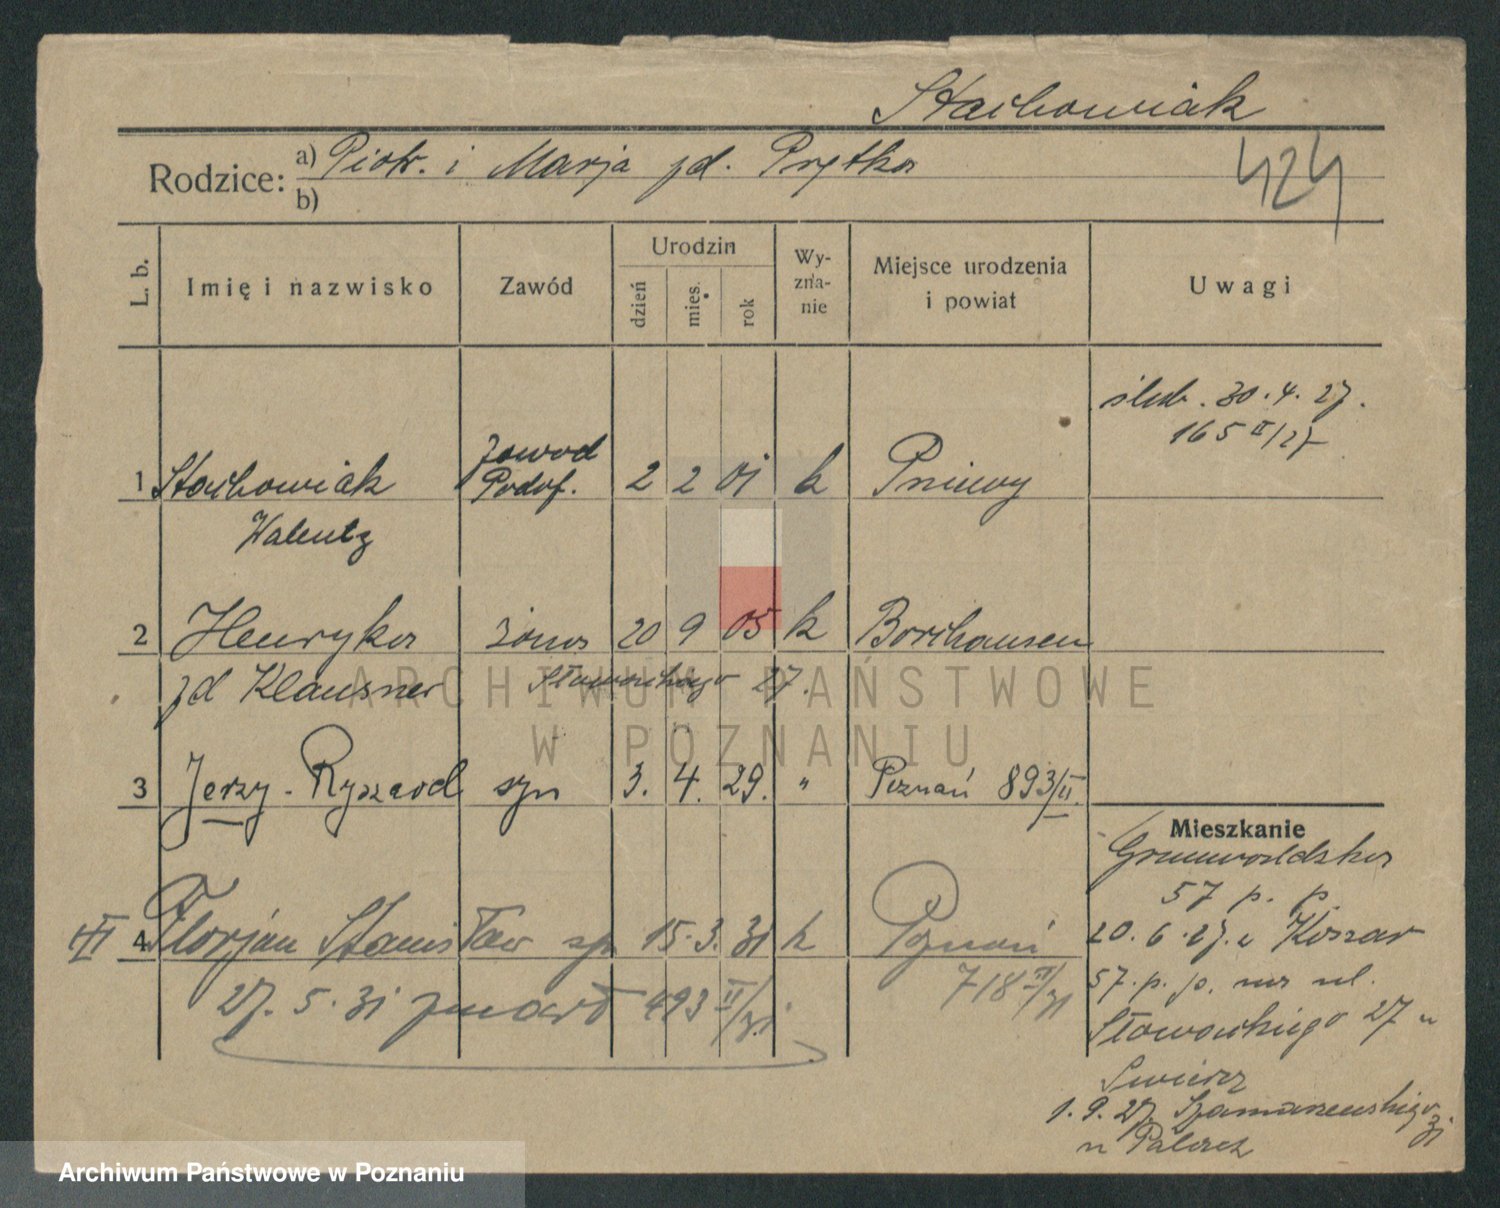 Stachowiak
Rodzice: a) Piotr. i Marja zd. Prętka
b)
424
L. b. Imię i nazwisko Zawód Urodzin dzień mies. rok Wy-zna-nie Miejsce urodzenia i powiat Uwagi
ślub. 30.4.27.
165 II/27
1 Stachowiak zawod Podof. 2 2 01 k Pniewy
Walenty
2 Henryka żona 20 9 05 k Borkhausen
zd Klausner Słowackiego 27.
3 Jerzy-Ryszard syn 3. 4. 29. " Poznań 893/II.
Mieszkanie
Grunwaldzka
57 p. p.
4 Florjan Stanisław syn 15. 3. 31 k Poznań
718 II/31
27. 5. 31 zmarł 493 II/31
20. 6. 27. z Koszar
57. p. p. na ul.
Słowackiego 27 u
1. 9. 27. Szamarzewskiego 31
u
ARCHIWUM PAŃSTWOWE
W POZNANIU
Archiwum Państwowe w Poznaniu